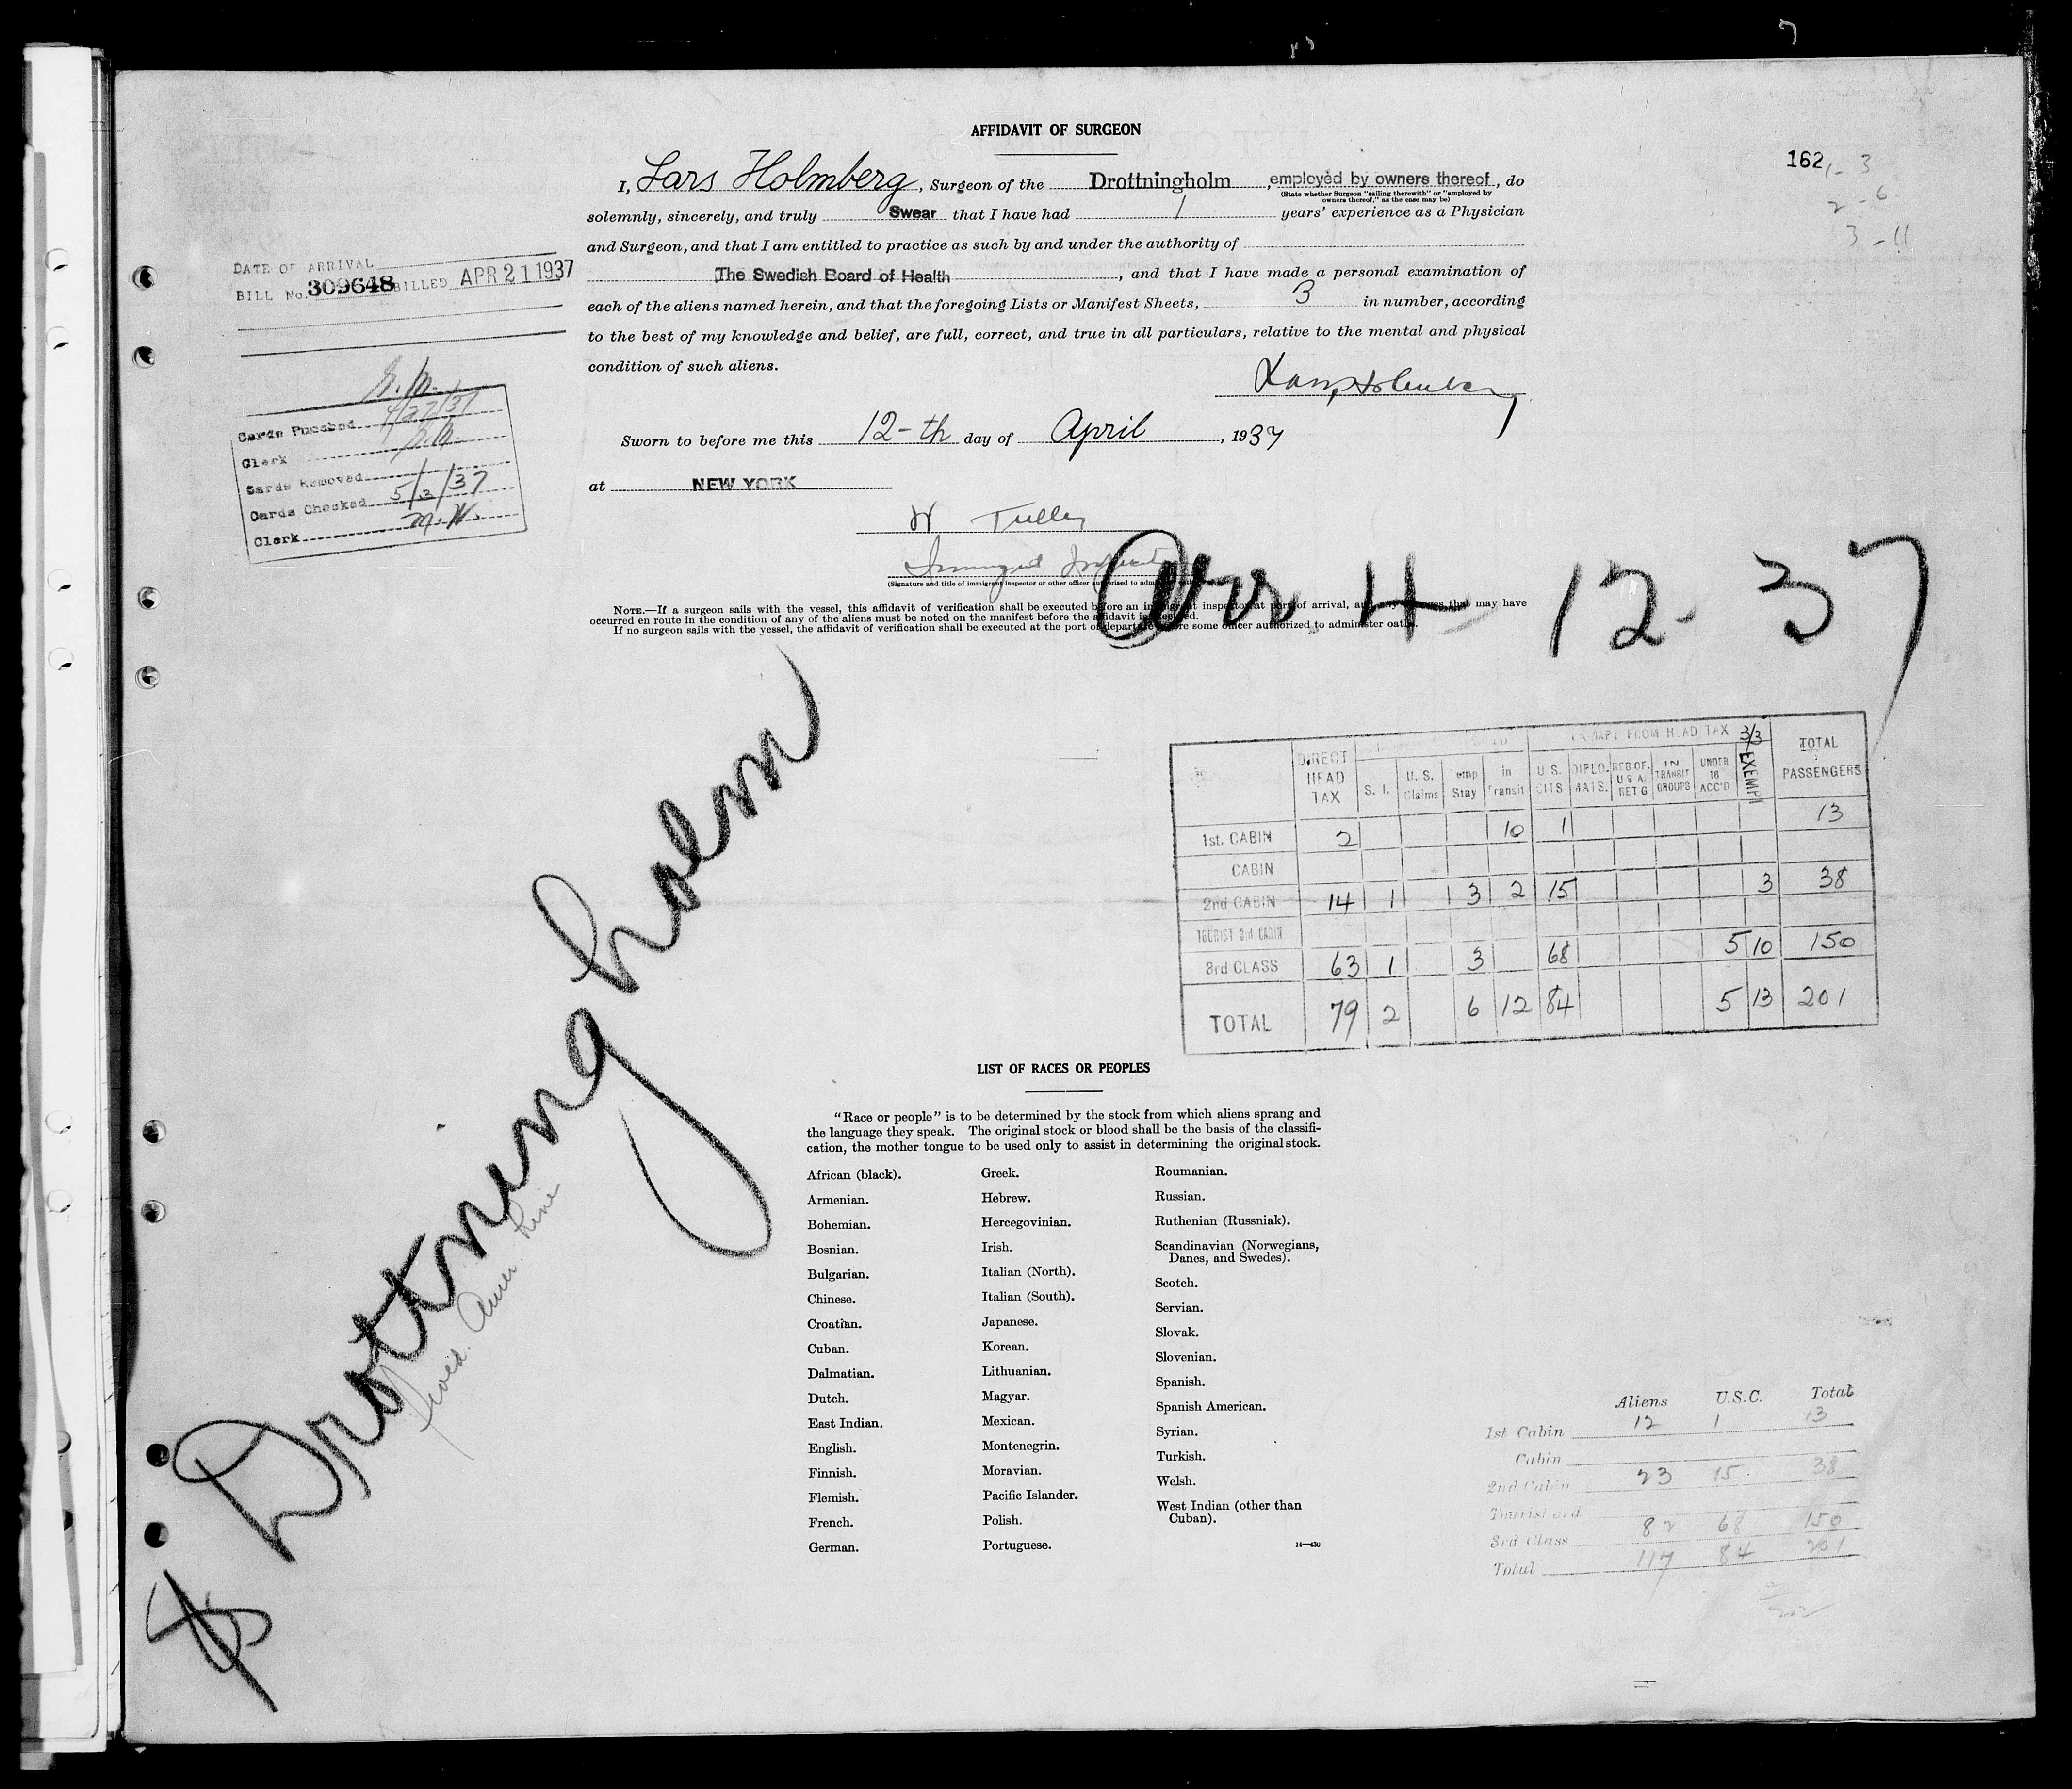 AFFIDAVIT OF SURGEON
162
1-3
2-6
3-11
I, Lars Holmberg, Surgeon of the Drottningholm, employed by owners thereof, do
(State whether Surgeon "sailing therewith" or "employed by
owners thereof," as the case may be)
solemnly, sincerely, and truly Swear that I have had 1 years' experience as a Physician
and Surgeon, and that I am entitled to practice as such by and under the authority of
The Swedish Board of Health, and that I have made a personal examination of
each of the aliens named herein, and that the foregoing Lists or Manifest Sheets, 3 in number, according
to the best of my knowledge and belief, are full, correct, and true in all particulars, relative to the mental and physical
condition of such aliens.
Lars Holmberg
Sworn to before me this 12-th day of April, 1937
at NEW YORK
W Tulley
Immigrant Inspector
(Signature and title of immigrant inspector or other officer authorized to administer oaths)
NOTE.—If a surgeon sails with the vessel, this affidavit of verification shall be executed before an immigrant inspector at port of arrival, and any changes that may have
occurred en route in the condition of any of the aliens must be noted on the manifest before the affidavit is executed.
If no surgeon sails with the vessel, the affidavit of verification shall be executed at the port of departure before some officer authorized to administer oaths.
DATE OF ARRIVAL
BILL No. 309648 BILLED APR 21 1937
Cards Punched 4/27/37
Clerk
Cards Removed
Cards Checked 5/3/37
Clerk M.W.
Arr 4-12-37
Drottningholm
Swed. Amer. Line
EXEMPT FROM HEAD TAX 3/3
DIRECT HEAD TAX S. I. U. S. Claims Temp Stay In Transit U. S. CITS DIPLO-MATS. RES OF. U S A. RET G IN TRANSIT GROUPS UNDER 16 ACC'D EXEMPT TOTAL PASSENGERS
1st. CABIN 2 10 1 13
CABIN
2nd CABIN 14 1 3 2 15 3 38
TOURIST 3rd CABIN
3rd CLASS 63 1 3 68 5 10 150
TOTAL 79 2 6 12 84 5 13 201
LIST OF RACES OR PEOPLES
"Race or people" is to be determined by the stock from which aliens sprang and
the language they speak. The original stock or blood shall be the basis of the classifi-
cation, the mother tongue to be used only to assist in determining the original stock.
African (black).
Armenian.
Bohemian.
Bosnian.
Bulgarian.
Chinese.
Croatian.
Cuban.
Dalmatian.
Dutch.
East Indian.
English.
Finnish.
Flemish.
French.
German.
Greek.
Hebrew.
Hercegovinian.
Irish.
Italian (North).
Italian (South).
Japanese.
Korean.
Lithuanian.
Magyar.
Mexican.
Montenegrin.
Moravian.
Pacific Islander.
Polish.
Portuguese.
Roumanian.
Russian.
Ruthenian (Russniak).
Scandinavian (Norwegians,
Danes, and Swedes).
Scotch.
Servian.
Slovak.
Slovenian.
Spanish.
Spanish American.
Syrian.
Turkish.
Welsh.
West Indian (other than
Cuban).
14—430
Aliens U.S.C. Total
1st Cabin 12 1 13
Cabin
2nd Cabin 23 15 38
Tourist 3rd
3rd Class 82 68 150
Total 117 84 201